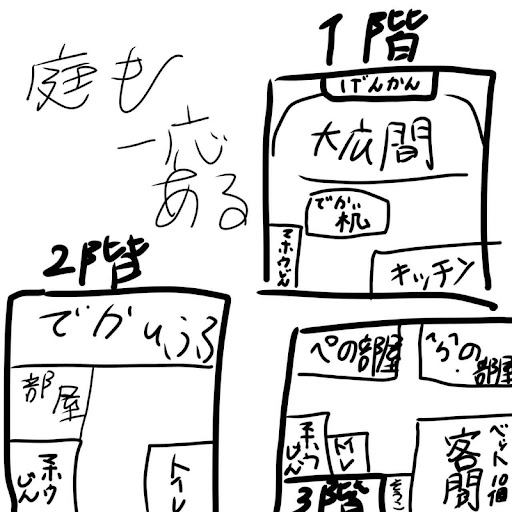 庭も
一応
ある
1階
げんかん
大広間
でがい
机
マホウじん
キッチン
2階
でかいふろ
部屋
マホウじん
トイレ
ペの部屋
ぺらの
部屋
マホウじん
トイレ
3階
客間
ベット10個